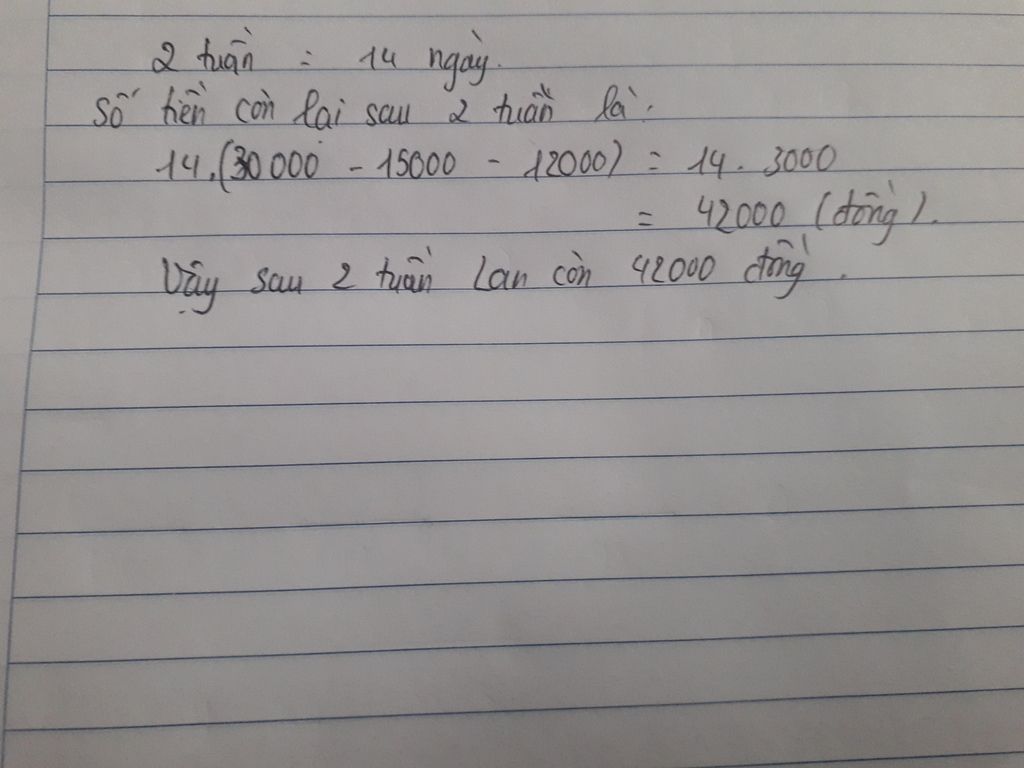 2 tuần = 14 ngày.
Số tiền còn lại sau 2 tuần là:
14.(30000 - 15000 - 12000) = 14. 3000
= 42000 (đồng).
Vậy sau 2 tuần Lan còn 42000 đồng.